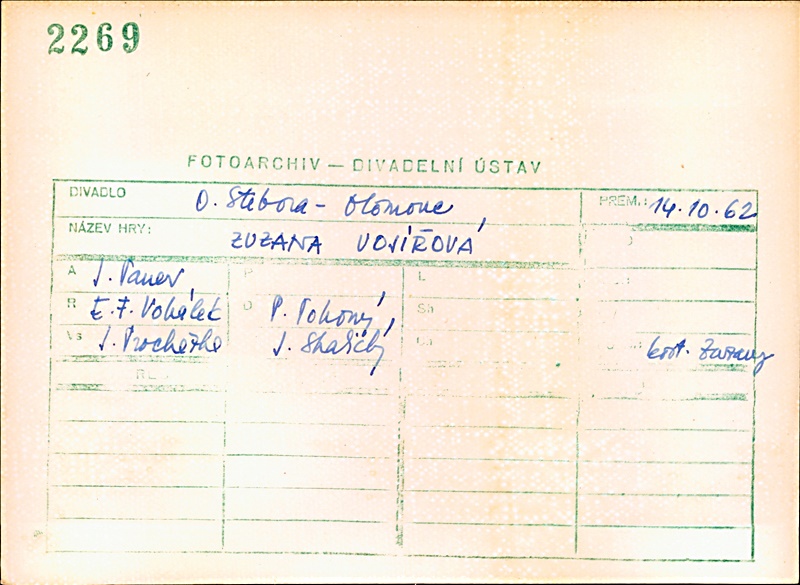 2269
FOTOARCHIV — DIVADELNÍ ÚSTAV
DIVADLO O. Stibora - Olomouc, PREM.: 14.10.62
NÁZEV HRY: ZUZANA VOJÍŘOVÁ
A J. Pauer, P L
R E. F. Vokálek D P. Pokorný, Sh
Vs J. Procházka J. Skalický kost. Zuzany
RE